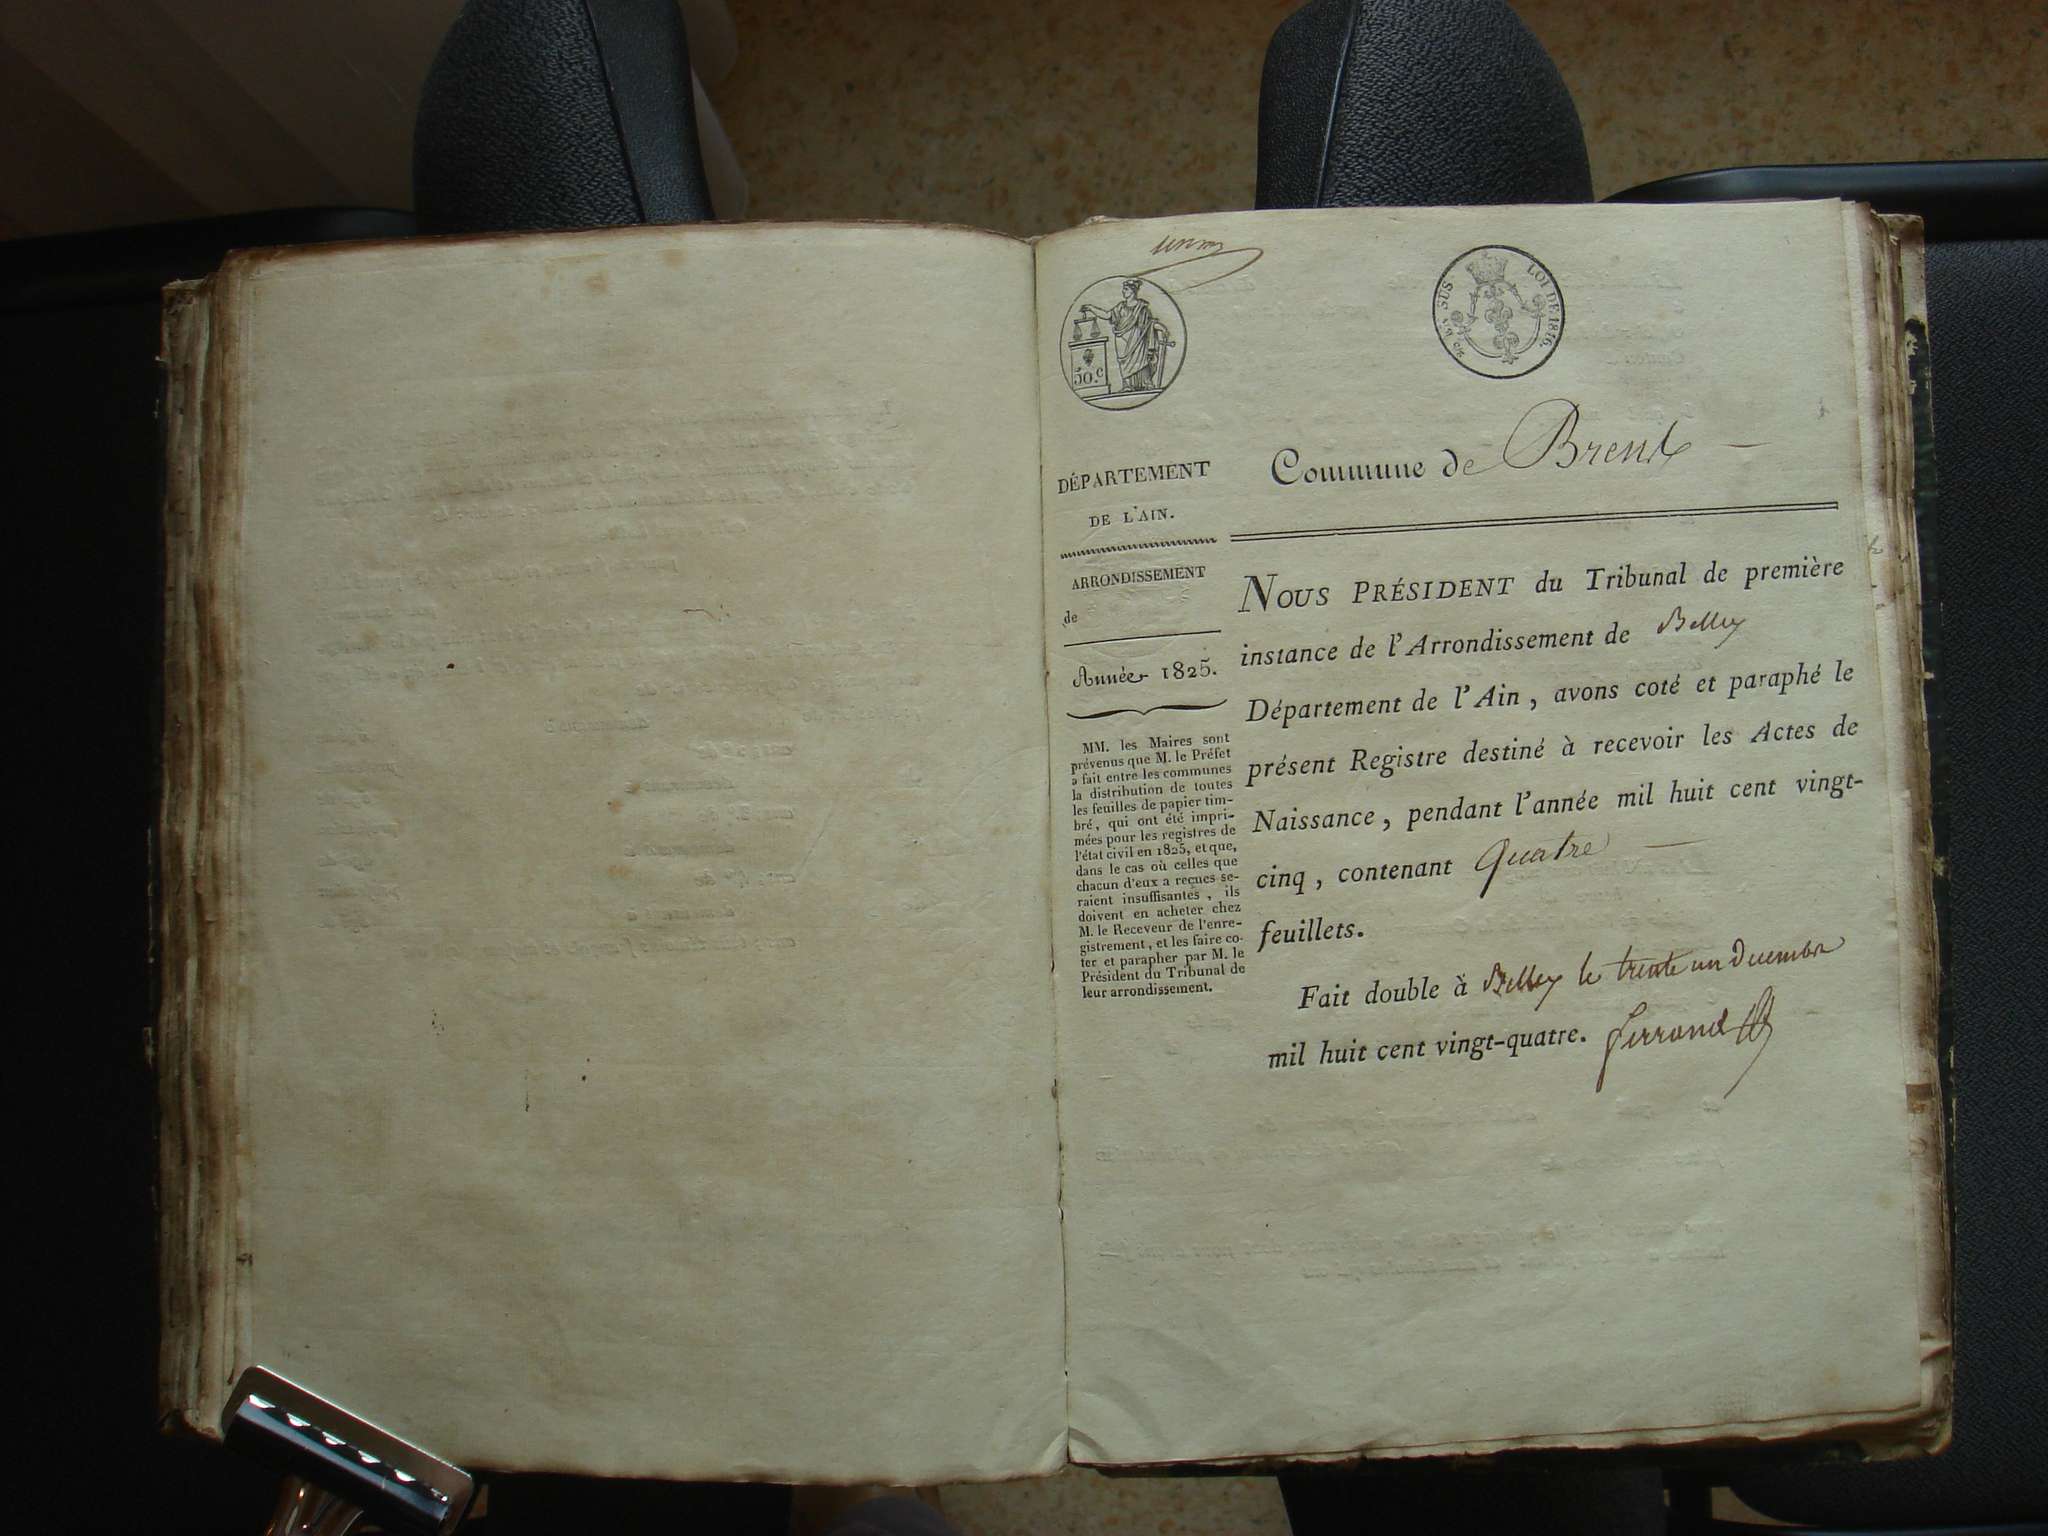 50.c
EN SUS
LOI DE 1816.
Commune de Brenx
DÉPARTEMENT
DE L'AIN.
ARRONDISSEMENT
de
Année 1825.
MM. les Maires sont
prévenus que M. le Préfet
a fait entre les communes
la distribution de toutes
les feuilles de papier tim-
bré, qui ont été impri-
mées pour les registres de
l'état civil en 1825, et que,
dans le cas où celles que
chacun d'eux a reçues se-
raient insuffisantes, ils
doivent en acheter chez
M. le Receveur de l'enre-
gistrement, et les faire co-
ter et parapher par M. le
Président du Tribunal de
leur arrondissement.
NOUS PRÉSIDENT du Tribunal de première
instance de l'Arrondissement de Belley
Département de l'Ain, avons coté et paraphé le
présent Registre destiné à recevoir les Actes de
Naissance, pendant l'année mil huit cent vingt-
cinq, contenant quatre
feuillets.
Fait double à Belley le trente un Decembre
mil huit cent vingt-quatre. Ferrand